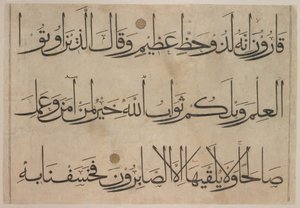 قارون إنه لذو حظ عظيم وقال الذين أوتوا
العلم ويلكم ثواب الله خير لمن آمن وعمل
صالحا ولا يلقيها إلا الصابرون فخسفنا به